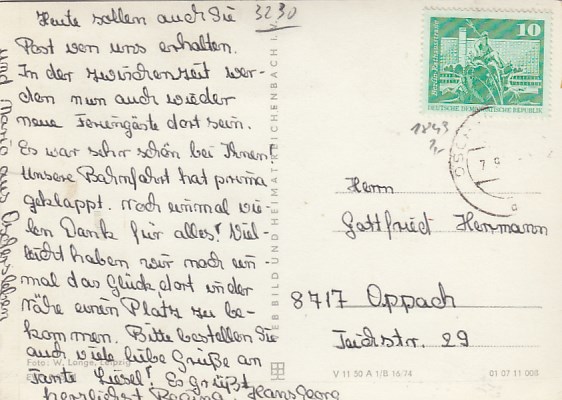 Heute sollen auch Sie
Post von uns erhalten.
In der zwischenzeit wer-
den nun auch wieder
neue Feriengäste dort sein.
Es war sehr schön bei Ihnen.
Unsere Bahnfahrt hat prima
geklappt. noch einmal vie-
len Dank für alles! Viel-
leicht haben wir noch ein
mal das Glück, dort in der
nähe einen Platz zu be-
kommen. Bitte bestellen Sie
auch viele liebe Grüße an
Tante Liesel! Es Grüßt
herzlichst Regina, Hansgeorg
und Mario aus Oschersleben
3230
10
DEUTSCHE DEMOKRATISCHE REPUBLIK
1843
OSCH
7. 9
Herrn
Gottfried Herrmann
8717 Oppach
Teichstr. 29
VEB BILD UND HEIMAT REICHENBACH I.
Foto: W. Lange, Leipzig
V 11 50 A 1/B 16/74
01 07 11 008